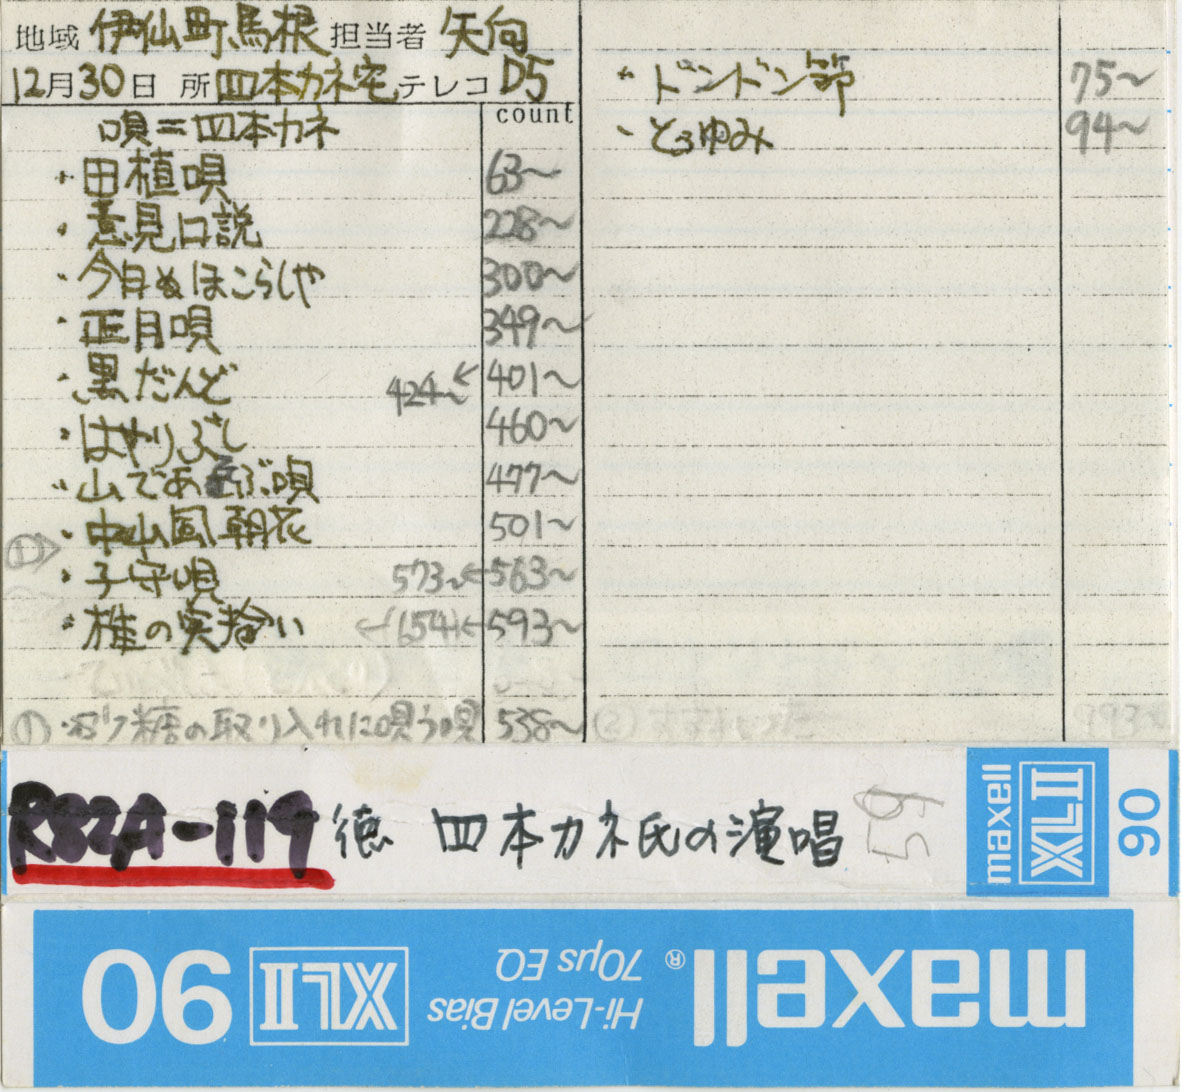 地域 伊仙町馬根 担当者 矢向
12月30日 所 四本カネ宅 テレコ D5
count
唄=四本カネ
・田植唄 63〜
・意見口説 228〜
・今日ぬほこらしゃ 300〜
・正月唄 349〜
・黒だんど 424〜 ← 401〜
・はやりぶし 460〜
・山であそぶ唄 477〜
・中山風朝花 501〜
①>
・子守唄 573〜 ← 563〜
・椎の実拾い ←(654)← 593〜
① ・砂糖の取り入れに唄う唄 538〜
・ドンドン節 75〜
・とぅゆみ 94〜
②
993〜
R83A-119 徳 四本カネ氏の演唱 59
maxell XLII 90
maxell® Hi-Level Bias 70μs EQ XLII 90